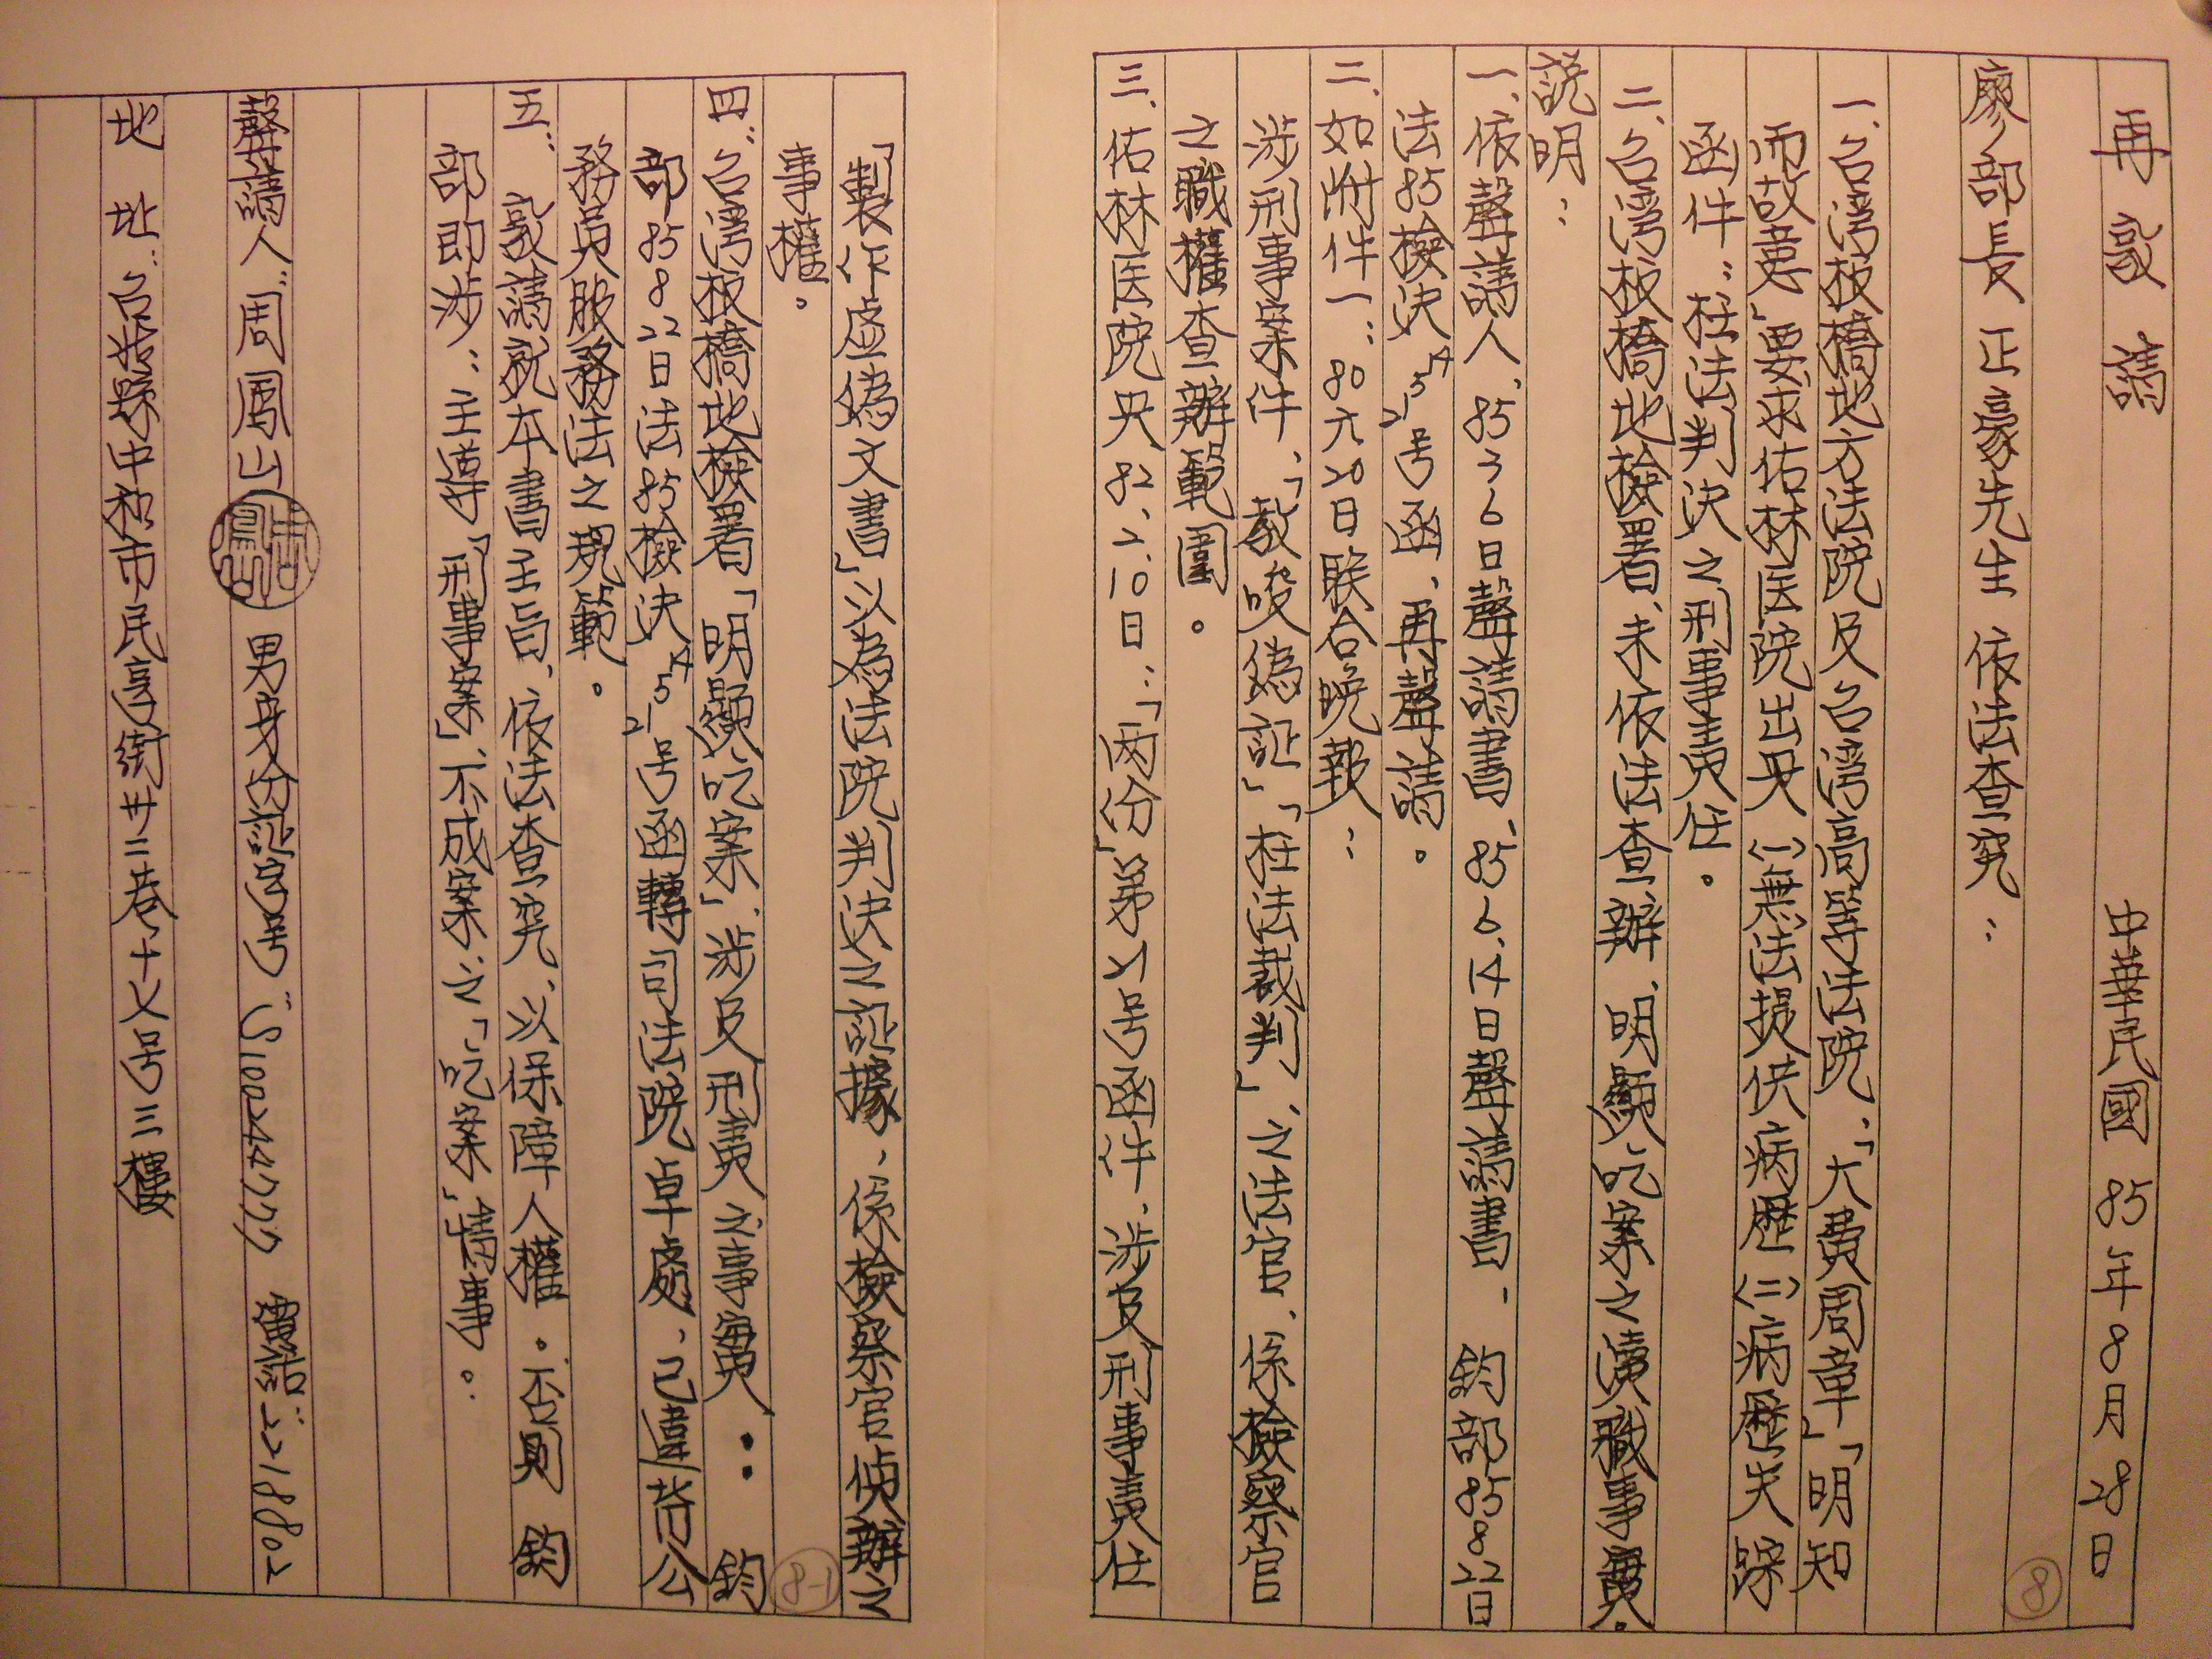 再 敬 請 中華民國 85 年 8 月 28 日
8
廖部長正豪先生 依法查究：
一、台湾板橋地方法院及台湾高等法院，「大費周章」「明知
而故意」要求佑林医院出具(一)無法提供病歷(二)病歷失踪
函件：枉法判決之刑事責任。
二、台湾板橋地檢署、未依法查辦、明顯吃案之瀆職事實.
説明：
一、依聲請人、85 3 6日聲請書、85 6.14日聲請書、鈞部85 8 22日
法85檢決 号函、再聲請。
二、如附件一：80 六 20日联合晚報：
涉刑事案件、「教唆偽証」「枉法裁判」、之法官、係檢察官
之職權查辦範圍。
三、佑林医院具82、2、10日：「兩份」第 号函件、涉及刑事責任
「製作虛偽文書」以為法院判決之証據、係檢察官偵辦之
事權。
8-1
四：台湾板橋地檢署「明顯吃案」、涉及刑責之事實：鈞
部85 8 22日法85檢決 号函轉司法院卓處、已違背公
務員服務法之規範。
五：敬請就本書主旨、依法查究、以保障人權．否則 鈞
部即涉：主導「刑事案」、不成案、之「吃案」情事。
聲請人：周鳳山 男 身份証字号：S100244777 電話：2218802
地 址：台北縣中和市民享街廿二巷十七号三樓